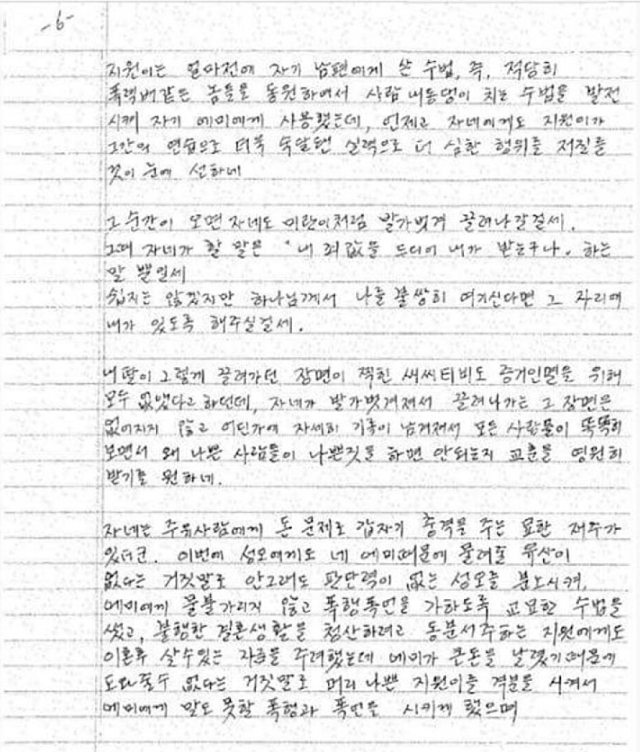 -6-
지원이는 얼마전에 자기 남편에게 쓴 수법, 즉, 적당히
폭력배같은 놈들을 동원하여서 사람 내동댕이 치는 수법을 발전
시켜 자기 에미에게 사용했는데, 언제고 자네에게도 지원이가
그간의 연습으로 더욱 숙달된 실력으로 더 심한 행위를 저질를
것이 눈에 선하네
그 순간이 오면 자네도 미란이처럼 발가벗겨 끌려나갈걸세.
그때 자네가 할 말은 "내 죄값을 드디어 내가 받는구나. 하는
말 뿐일세
쉽지는 않겠지만 하나님께서 나를 불쌍히 여기신다면 그 자리에
내가 있도록 해주실걸세.
내 딸이 그렇게 끌려가던 장면이 찍힌 씨씨티비도 증거인멸을 위해
모두 없앴다고 하던데, 자네가 발가벗겨져서 끌려나가는 그 장면은
없어지지 않고 어딘가에 자세히 기록이 남겨져서 모든 사람들이 똑똑히
보면서 왜 나쁜 사람들이 나쁜짓을 하면 안되는지 교훈을 영원히
받기를 원하네.
자네는 주위사람에게 돈 문제로 갑자기 충격을 주는 묘한 재주가
있더군. 이번에 성오에게도 네 에미때문에 물려줄 유산이
없다는 거짓말로 안그래도 판단력이 없는 성오를 분노시켜,
에미에게 물불가리지 않고 폭행폭언을 가하도록 교묘한 수법을
썼고, 불행한 결혼생활을 청산하려고 동분서주하는 지원에게도
이혼후 살수있는 자금을 주려했는데 에미가 큰돈을 날렸기때문에
도와줄수 없다는 거짓말로 머리 나쁜 지원이를 격분을 시켜서
에미에게 말도 못할 폭행과 폭언을 시키게 했으며